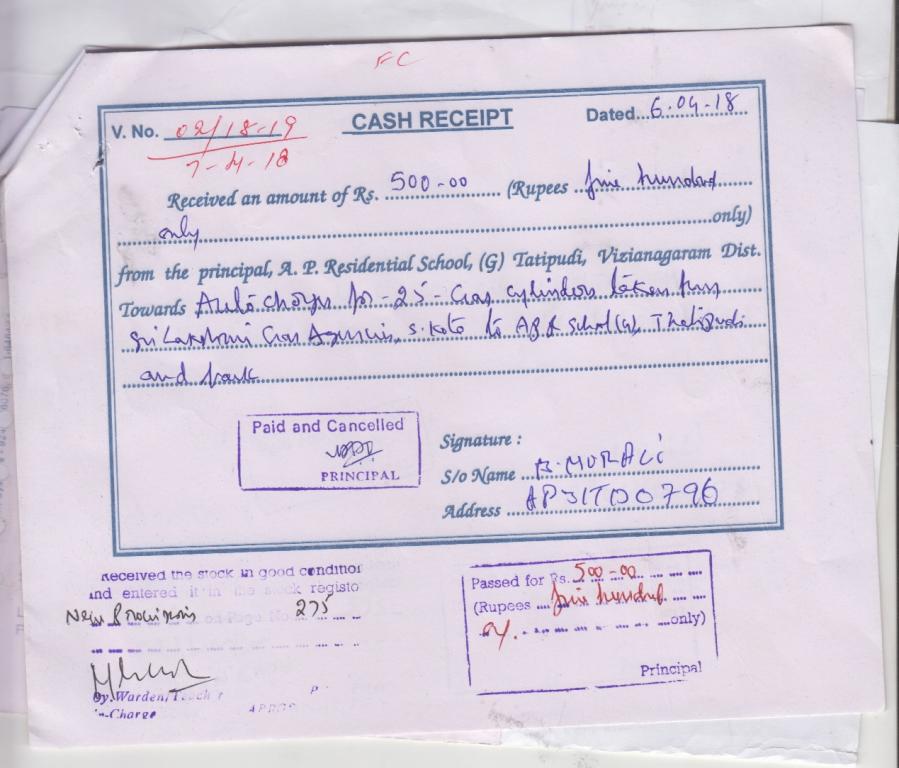 FC
V. No. 02/18-19
7-4-18
CASH RECEIPT
Dated...6.04.18
Received an amount of Rs. 500-00 (Rupees five hundred
only only)
from the principal, A. P. Residential School, (G) Tatipudi, Vizianagaram Dist.
Towards Auto charges for -25- Gas cylinders taken from
Sri Lakshmi Gas Agencies, S.Kota to APR School(G), Thatipudi
and back
Paid and Cancelled
PRINCIPAL
Signature :
S/o Name B.MURALI
Address AP31TD0796
Received the stock in good condition
and entered it in the stock registo
New Provisions on Page No. 275
Dy.Warden, Teach r
in-Charge
Passed for Rs. 500-00
(Rupees five hundred
only)
Principal